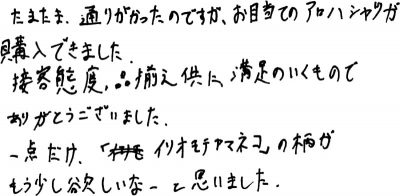 たまたま、通りがかったのですが、お目当てのアロハシャツが
購入できました。
接客態度、品揃え供に満足のいくもので
ありがとうございました。
一点だけ、「イリオモテヤマネコ」の柄が
もう少し欲しいなーと思いました。